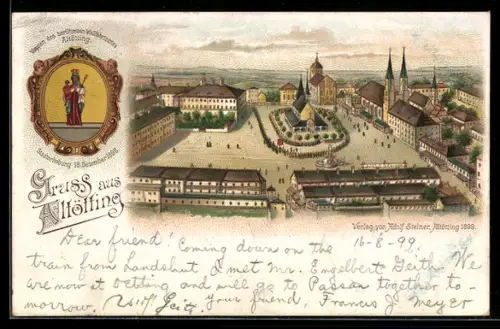 Wappen des berühmten Wallfahrtsortes
Altötting.
Stadterhebung 18. Dezember 1898.
Gruss aus
Altötting
Verlag von Adolf Steiner, Altötting 1898.
16-8-99.
Dear friend! Coming down on the
train from Landshut I met Mr. Engelbert Geith. We
are now it Oetting and will go to Passau together to-
morrow.
Your friend, Francis J. Meyer